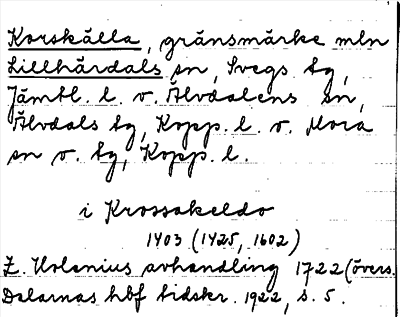 Korskälla, gränsmärke mln
Lillhärdals sn, Svegs tg,
Jämtl. l. o. Älvdalens sn,
Älvdals tg, Kopp. l. o. Mora
sn o. tg, Kopp. l.
i Krossakeldo
1403 (1425, 1602)
Z. Holenius avhandling 1722 (övers.
Dalarnas hbf tidskr. 1922, s. 5.